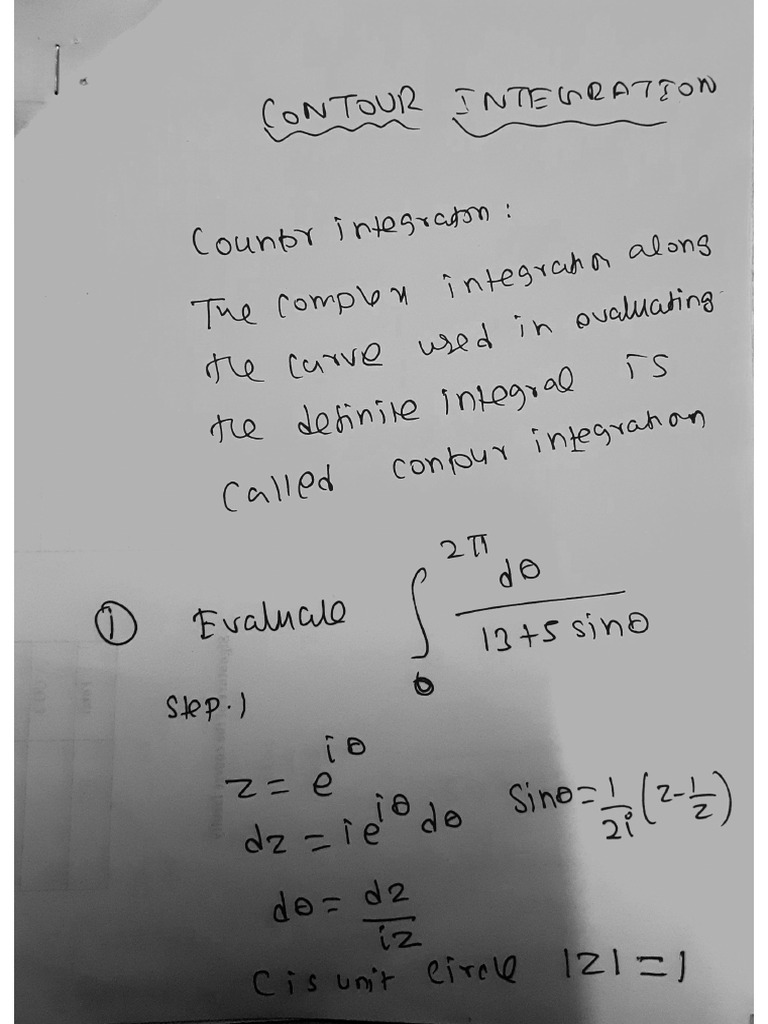 1.
CONTOUR INTEGRATION
Countor integration:
The complex integration along
the curve used in evaluating
the definite integral is
Called contour integration
① Evaluate ∫₀^2π dθ / 13+5 sinθ
Step.1
z = e^iθ
dz = ie^iθ dθ   Sinθ = 1/2i (z - 1/z)
dθ = dz/iz
C is unit circle |z| = 1